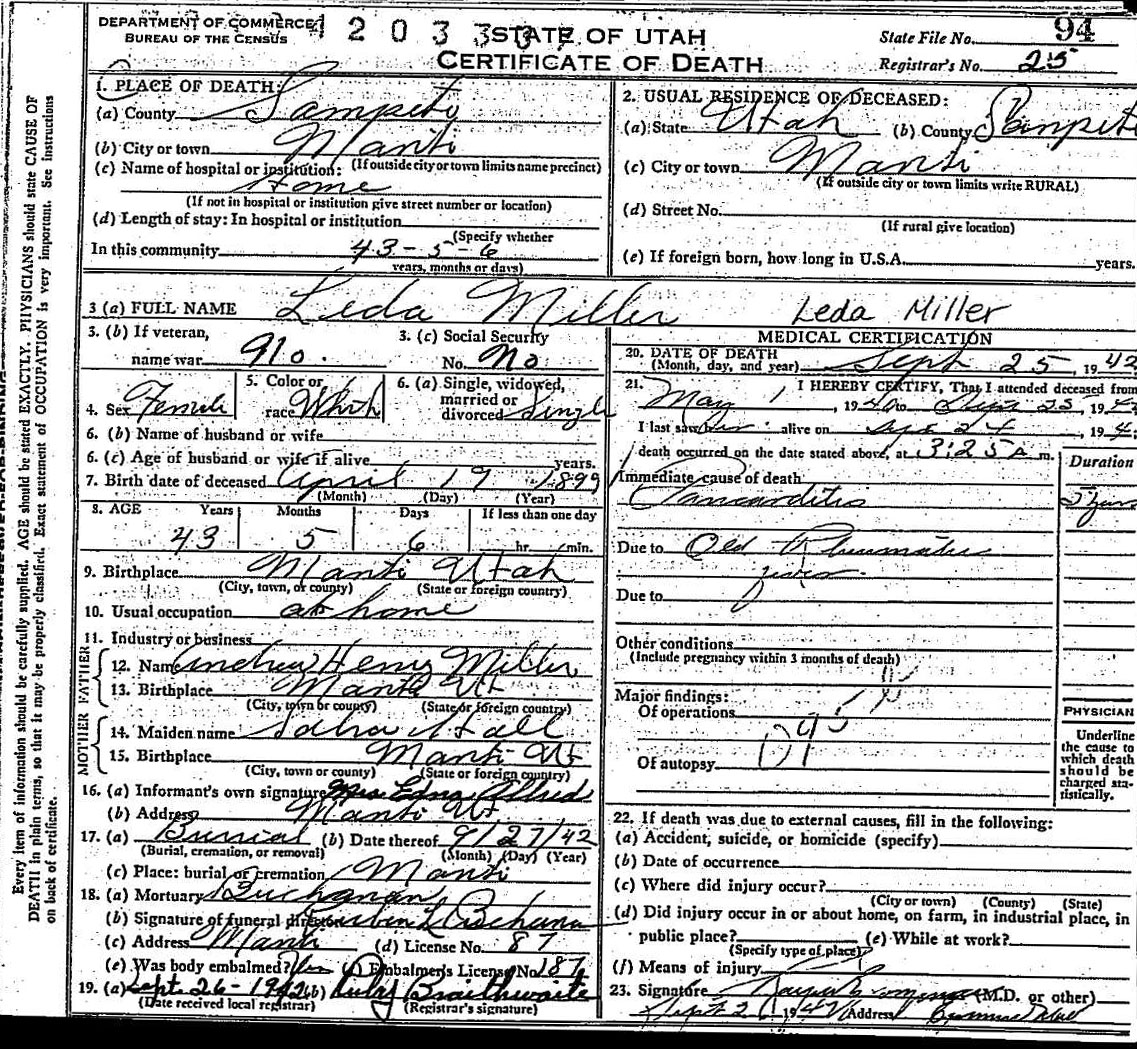 DEPARTMENT OF COMMERCE
BUREAU OF THE CENSUS
STATE OF UTAH
CERTIFICATE OF DEATH
State File No. 94
Registrar's No. 25
Every item of information should be carefully supplied. AGE should be stated EXACTLY. PHYSICIANS should state CAUSE OF
DEATH in plain terms, so that it may be properly classified. Exact statement of OCCUPATION is very important. See instructions
on back of certificate.
1. PLACE OF DEATH:
(a) County Sanpete
(b) City or town Manti
(If outside city or town limits name precinct)
(c) Name of hospital or institution:
Home
(If not in hospital or institution give street number or location)
(d) Length of stay: In hospital or institution
(Specify whether
In this community 43-5-6
years, months or days)
2. USUAL RESIDENCE OF DECEASED:
(a) State Utah (b) County Sanpete
(c) City or town Manti
(If outside city or town limits write RURAL)
(d) Street No.
(If rural give location)
(e) If foreign born, how long in U.S.A. years.
3 (a) FULL NAME Leda Miller Leda Miller
3. (b) If veteran,
name war No.
3. (c) Social Security
No. No
4. Sex Female
5. Color or
race White
6. (a) Single, widowed,
married or
divorced Single
6. (b) Name of husband or wife
6. (c) Age of husband or wife if alive years.
7. Birth date of deceased April 19 1899
(Month) (Day) (Year)
8. AGE Years Months Days If less than one day
43 5 6 hr. min.
9. Birthplace Manti Utah
(City, town, or county) (State or foreign country)
10. Usual occupation at home
11. Industry or business
FATHER
12. Name Andrew Henry Miller
13. Birthplace Manti Ut
(City, town or county) (State or foreign country)
MOTHER
14. Maiden name Hall
15. Birthplace Manti Ut
(City, town or county) (State or foreign country)
16. (a) Informant's own signature Mrs. Edna Allred
(b) Address Manti Ut
17. (a) Burrial (b) Date thereof 9/27/42
(Burial, cremation, or removal) (Month) (Day) (Year)
(c) Place: burial or cremation Manti
18. (a) Mortuary Buchanan
(b) Signature of funeral director
(c) Address Manti (d) License No. 87
(e) Was body embalmed? Yes (f) Embalmer's License No. 187
19. (a) Sept. 26-1942 (b) Ruby Braithwaite
(Date received local registrar) (Registrar's signature)
MEDICAL CERTIFICATION
20. DATE OF DEATH
(Month, day, and year) Sept 25, 1942
21. I HEREBY CERTIFY, That I attended deceased from
May 1, 1940 to Sept 25, 194
I last saw her alive on Sept 24, 194
death occurred on the date stated above, at 3:25 A m.
Immediate cause of death
Duration
Pancarditis
5 years
Due to Old Rheumatic
fever
Due to
Other conditions
(Include pregnancy within 3 months of death)
Major findings:
Of operations
Of autopsy
PHYSICIAN
Underline
the cause to
which death
should be
charged sta-
tistically.
22. If death was due to external causes, fill in the following:
(a) Accident, suicide, or homicide (specify)
(b) Date of occurrence
(c) Where did injury occur?
(City or town) (County) (State)
(d) Did injury occur in or about home, on farm, in industrial place, in
public place? (e) While at work?
(Specify type of place)
(f) Means of injury
23. Signature (M.D. or other)
Address